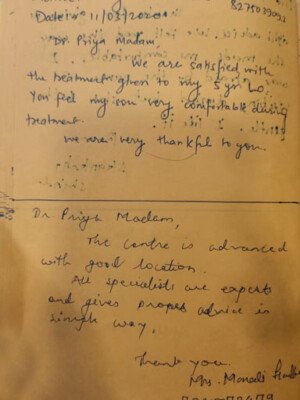 Date :- 11/03/2020
Dr. Priya Madam,
We are satisfied with
the treatment given to my 5 yr
You feel my son very comfortable during
treatment.
we are very thankful to you.
Dr Priya Madam,
The centre is advanced
with good location.
All specialists are experts
and gives proper advice in
simple way.
Thank you.
Mrs.